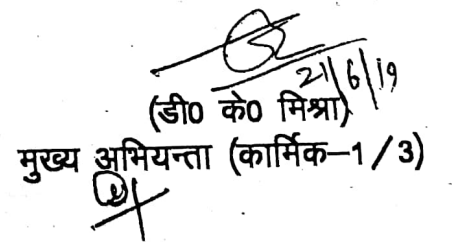 21/6/19
(डी0 के0 मिश्रा)
मुख्य अभियन्ता (कार्मिक–1/3)